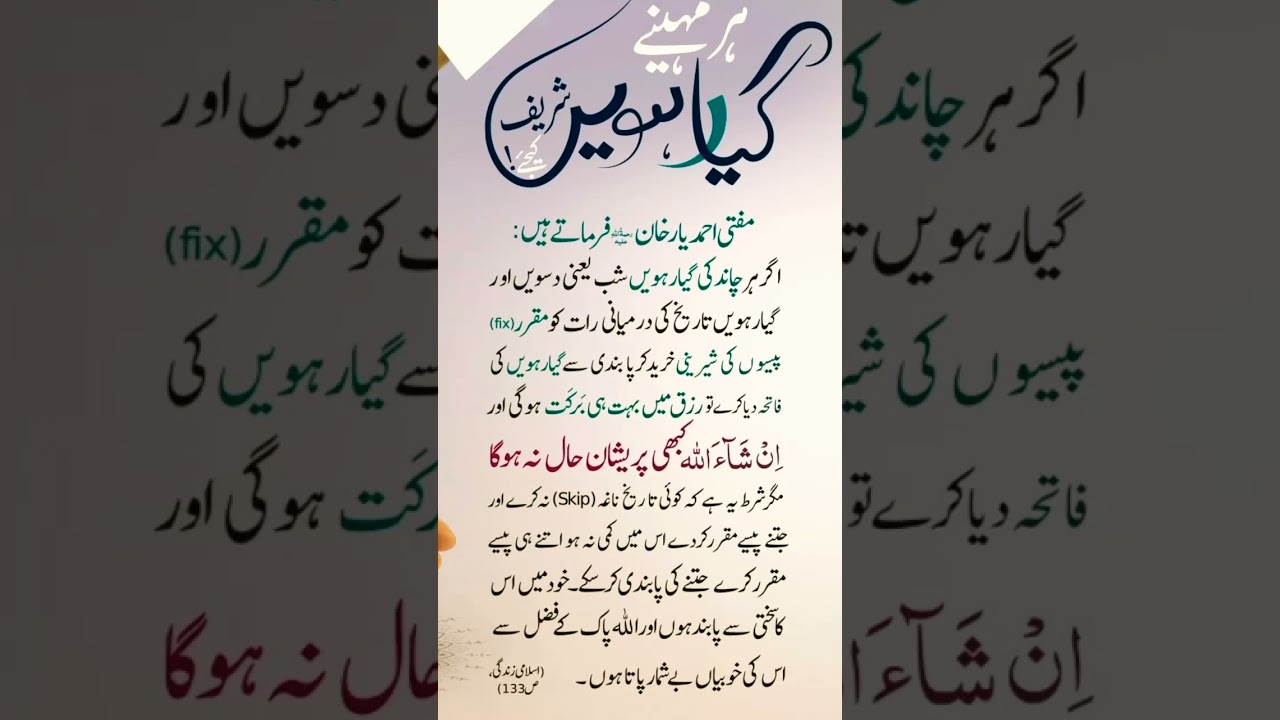 ہر مہینے
گیارہویں شریف
کیجئے!
مفتی احمد یار خان رحمۃ اللہ علیہ فرماتے ہیں:
اگر ہر چاند کی گیارہویں شب یعنی دسویں اور
گیارہویں تاریخ کی درمیانی رات کو مقرر (fix)
پیسوں کی شیرینی خرید کر پابندی سے گیارہویں کی
فاتحہ دیا کرے تو رزق میں بہت ہی بَرکَت ہوگی اور
اِنْ شَآءَ اللہ کبھی پریشان حال نہ ہوگا
مگر شرط یہ ہے کہ کوئی تاریخ ناغہ (Skip) نہ کرے اور
جتنے پیسے مقرر کردے اس میں کمی نہ ہو اتنے ہی پیسے
مقرر کرے جتنے کی پابندی کرسکے۔ خود میں اس
کا سختی سے پابند ہوں اور اللہ پاک کے فضل سے
اس کی خوبیاں بے شمار پاتا ہوں۔
(اسلامی زندگی، ص133)